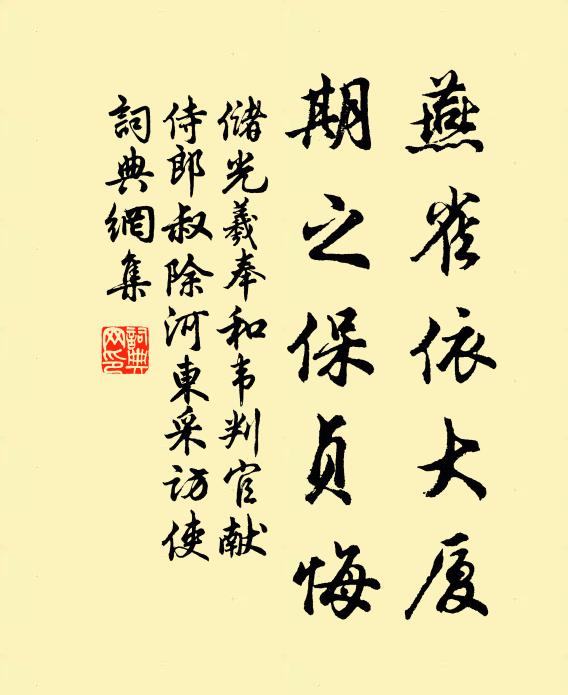 燕雀依大厦
期之保贞悔
储光羲奉和韦判官献
侍郎叔除河東采访使
詞典網集
詞典網印